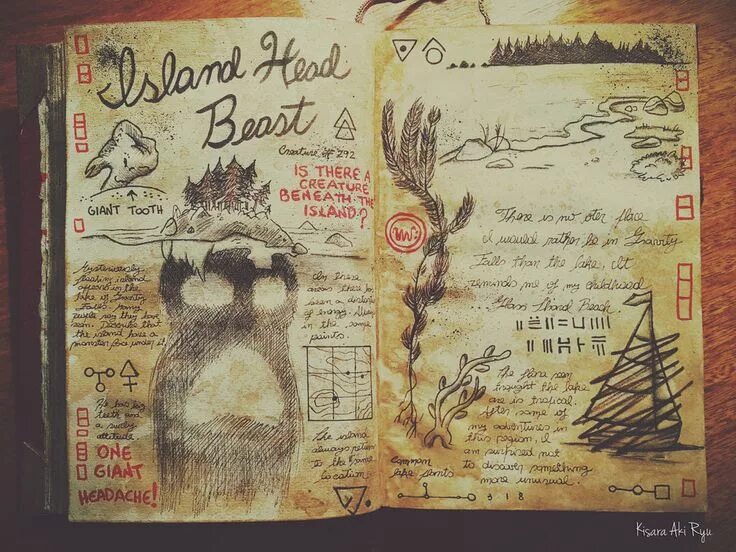 Island Head
Beast
Creature of 292
IS THERE A
CREATURE
BENEATH THE
ISLAND?
GIANT TOOTH
Mysteriously
floating island
appears in the
lake of Gravity
Falls. Many
people say they have
seen. Describe that
the island have a
monster face under it.
He has big
teeth and
a surly
attitude.
ONE
GIANT
HEADACHE!
In these
areas there
seen a
of energy.
in the same
points.
The island
always return
to the same
location.
There is no oter place
I would rather be in Gravity
Falls than the lake, It
reminds me of my childhood
Glass Shard Beach
The flora seen
trought the lake
are is tropical.
After some of
my adventures in
this region, I
am surprised not
to discover something
more unusual.
Common
lake plants
318
Kisara Aki Ryu